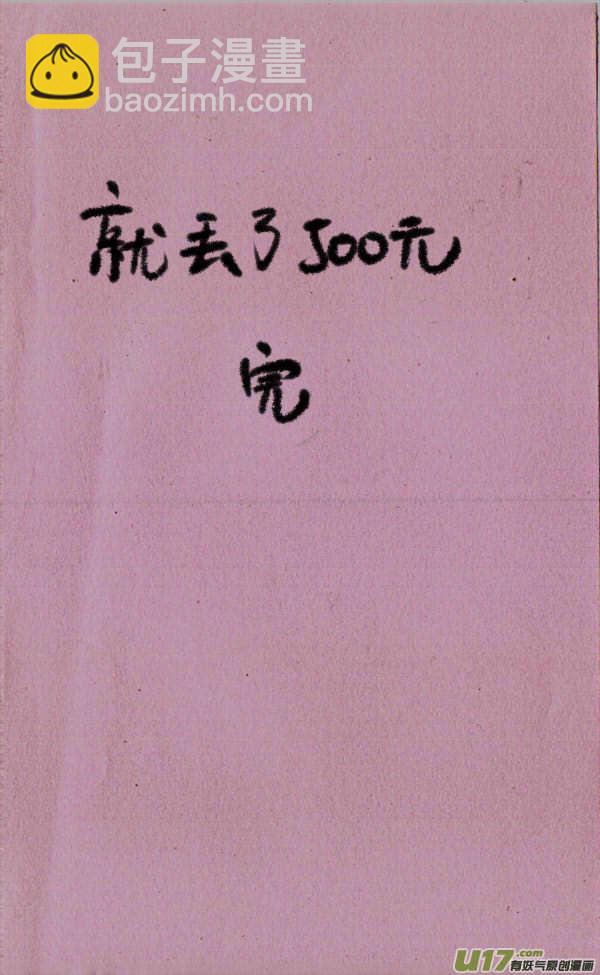 包子漫畫
baozimh.com
就丢了500元
完
U17.com
有妖气原创漫画